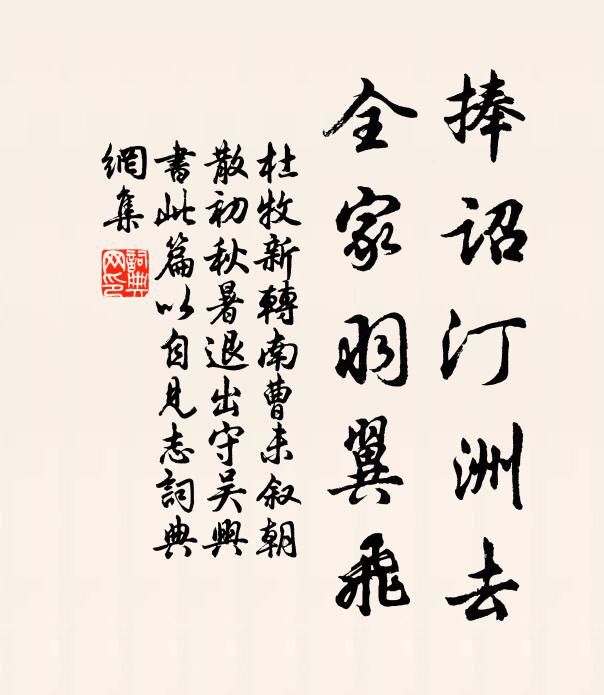 捧詔汀洲去
全家羽翼飛
杜牧新轉南曹未叙朝
散初秋暑退出守吴興
書此篇以自見志詞典
網集
詞典
网印